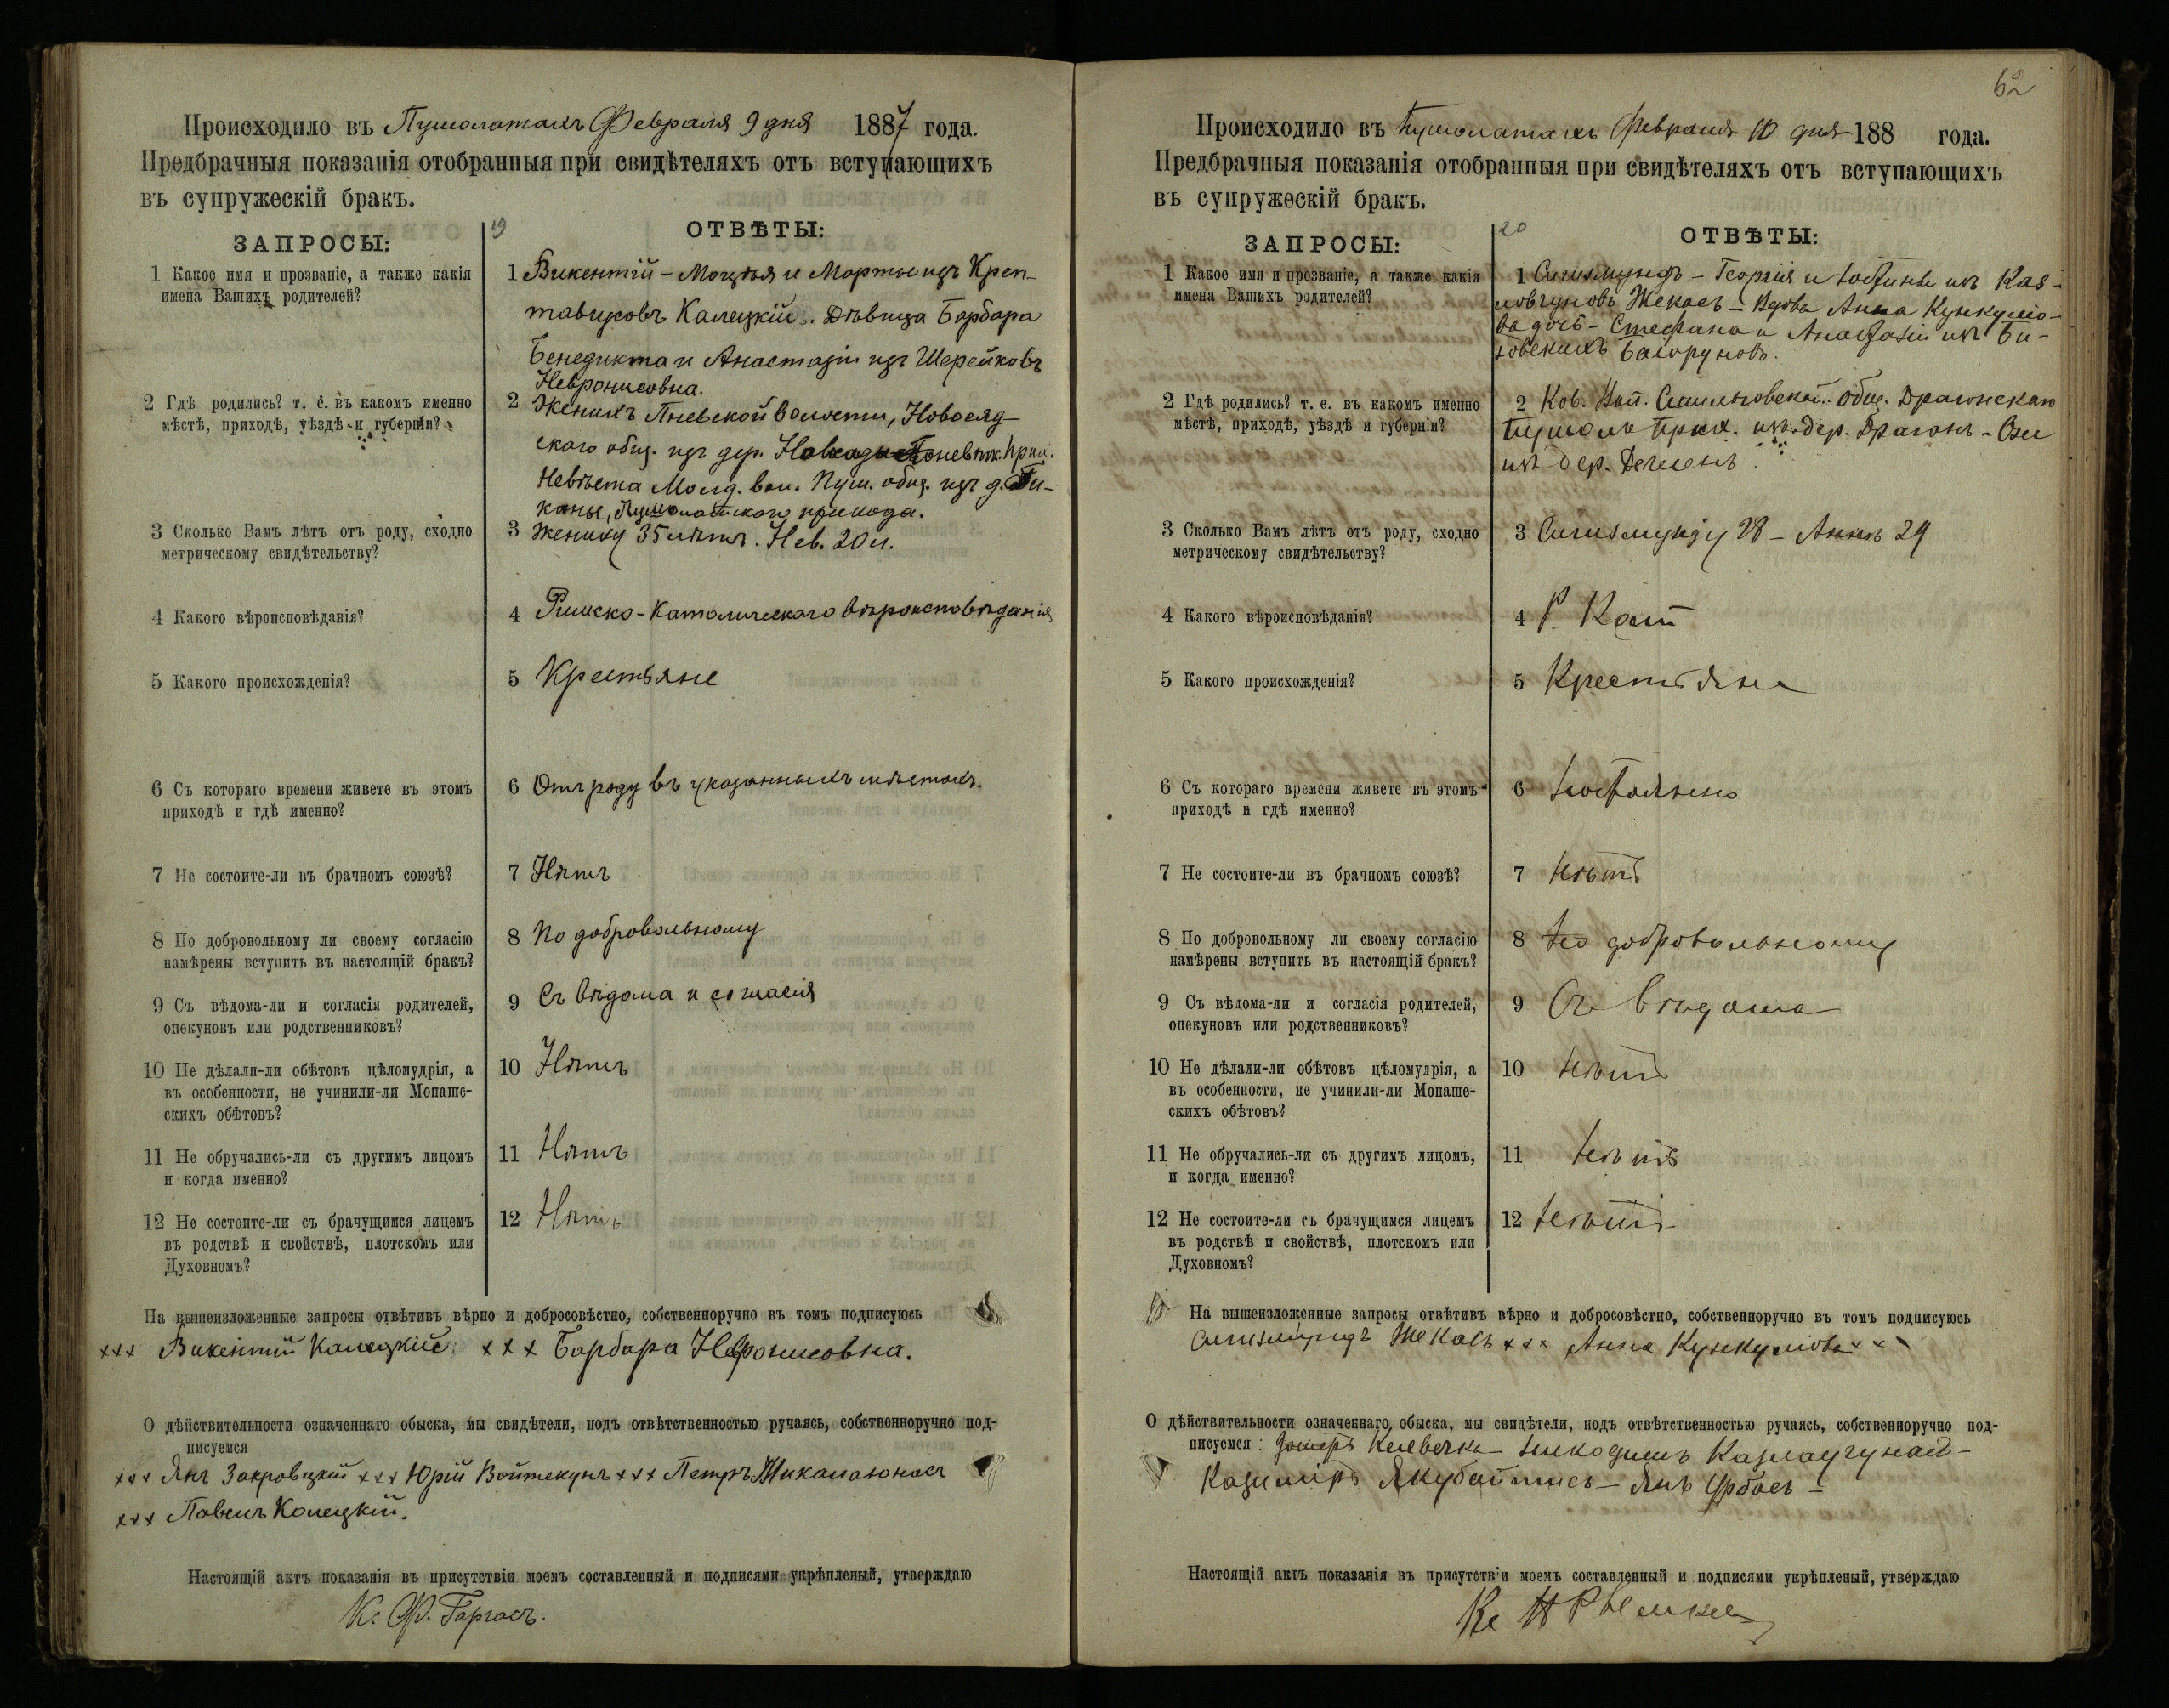 Происходило въ Пушолатахъ Февраля 9 дня 1887 года.
Предбрачныя показанія отобранныя при свидѣтеляхъ отъ вступающихъ
въ супружескій бракъ.
19
ЗАПРОСЫ:
ОТВѢТЫ:
1 Какое имя и прозваніе, а также какія
имена Вашихъ родителей?
1 Викентій – Моцѣя и Марты изъ Креп-
тавичовъ Калецкій. Дѣвица Барбара
Бенедикта и Анастазіи изъ Шерейковъ
Невронисовна.
2 Гдѣ родились? т. е. въ какомъ именно
мѣстѣ, приходѣ, уѣздѣ и губерніи?
2 Женихъ Пневской волости, Новосяд-
скаго общ. изъ дер. Поневѣж. прих.
Невѣста волн. Пуш. общ. изъ д. Ги-
каны, Пушолатскаго прихода.
3 Сколько Вамъ лѣтъ отъ роду, сходно
метрическому свидѣтельству?
3 Жениху 35 лѣтъ. Нев. 20 л.
4 Какого вѣроисповѣданія?
4 Римско-Католическаго вѣроисповѣданія
5 Какого происхожденія?
5 Крестьяне
6 Съ котораго времени живете въ этомъ
приходѣ и гдѣ именно?
6 Отъ роду въ указанныхъ мѣстахъ.
7 Не состоите-ли въ брачномъ союзѣ?
7 Нѣтъ
8 По добровольному ли своему согласію
намѣрены вступить въ настоящій бракъ?
8 По добровольному
9 Съ вѣдома-ли и согласія родителей,
опекуновъ или родственниковъ?
9 Съ вѣдома и согласія
10 Не дѣлали-ли обѣтовъ цѣломудрія, а
въ особенности, не учинили-ли Монаше-
скихъ обѣтовъ?
10 Нѣтъ
11 Не обручались-ли съ другимъ лицомъ
и когда именно?
11 Нѣтъ
12 Не состоите-ли съ брачущимся лицемъ
въ родствѣ и свойствѣ, плотскомъ или
Духовномъ?
12 Нѣтъ
На вышеизложенные запросы отвѣтивъ вѣрно и добросовѣстно, собственноручно въ томъ подписуюсь
ххх Викентій Калецкій ххх Барбара Невронисовна.
О дѣйствительности означеннаго обыска, мы свидѣтели, подъ отвѣтственностью ручаясь, собственноручно под-
писуемся
ххх Янъ Закровицкій ххх Юрій Войтекунъ ххх Петръ Микалаюнасъ
ххх Павелъ Калецкій.
Настоящій актъ показанія въ присутствіи моемъ составленный и подписями укрѣпленый, утверждаю
К. Ф. Гаргасъ.
62
Происходило въ Пушолатахъ Февраля 10 дня 188 года.
Предбрачныя показанія отобранныя при свидѣтеляхъ отъ вступающихъ
въ супружескій бракъ.
20
ЗАПРОСЫ:
ОТВѢТЫ:
1 Какое имя и прозваніе, а также какія
имена Вашихъ родителей?
1 Сигизмундъ – Георгія и Юстины изъ Каз-
Жекасъ – Вдова Анна Кункулё-
ва дочь – Стефана и Анастазіи изъ Би-
2 Гдѣ родились? т. е. въ какомъ именно
мѣстѣ, приходѣ, уѣздѣ и губерніи?
2 Ков. общ.
Пушол прих. изъ дер. Драгонъ – Она
изъ дер.
3 Сколько Вамъ лѣтъ отъ роду, сходно
метрическому свидѣтельству?
3 Сигизмунду 28 – Аннѣ 29
4 Какого вѣроисповѣданія?
4 Р Кат
5 Какого происхожденія?
5 Крестьяне
6 Съ котораго времени живете въ этомъ
приходѣ и гдѣ именно?
6 Постоянно
7 Не состоите-ли въ брачномъ союзѣ?
7 Нѣтъ
8 По добровольному ли своему согласію
намѣрены вступить въ настоящій бракъ?
8 По добровольному
9 Съ вѣдома-ли и согласія родителей,
опекуновъ или родственниковъ?
9 Съ вѣдома
10 Не дѣлали-ли обѣтовъ цѣломудрія, а
въ особенности, не учинили-ли Монаше-
скихъ обѣтовъ?
10 Нѣтъ
11 Не обручались-ли съ другимъ лицомъ,
и когда именно?
11 Нѣтъ
12 Не состоите-ли съ брачущимся лицемъ
въ родствѣ и свойствѣ, плотскомъ или
Духовномъ?
12 Нѣтъ
На вышеизложенные запросы отвѣтивъ вѣрно и добросовѣстно, собственноручно въ томъ подписуюсь
Сигизмундъ Жекасъ ххх Анна Кункулёва хх
О дѣйствительности означеннаго обыска, мы свидѣтели, подъ отвѣтственностью ручаясь, собственноручно под-
писуемся: Никодимъ
Казиміръ Якубайтисъ – Янъ Урбасъ –
Настоящій актъ показанія въ присутствіи моемъ составленный и подписями укрѣпленый, утверждаю